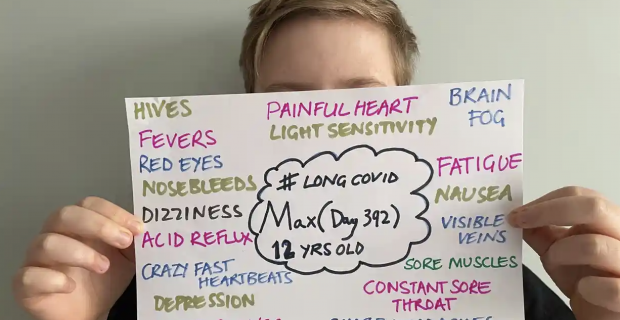 HIVES
PAINFUL HEART
BRAIN
FOG
LIGHT SENSITIVITY
FEVERS
RED EYES
NOSEBLEEDS
DIZZINESS
ACID REFLUX
CRAZY FAST
HEARTBEATS
DEPRESSION
# LONG COVID
Max (Day 392)
12 YRS OLD
FATIGUE
NAUSEA
VISIBLE
VEINS
SORE MUSCLES
CONSTANT SORE
THROAT